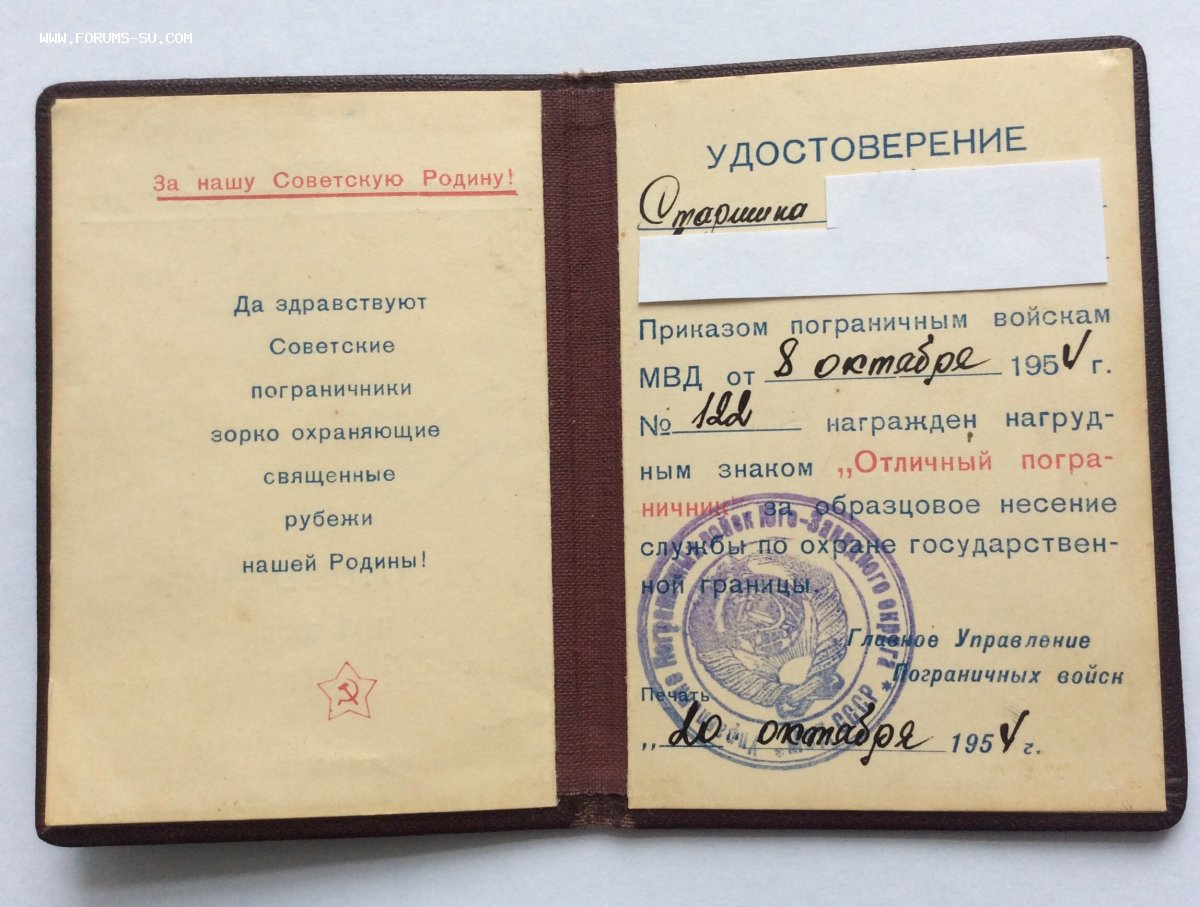 WWW.FORUMS-SU.COM
За нашу Советскую Родину!
Да здравствуют
Советские
пограничники
зорко охраняющие
священные
рубежи
нашей Родины!
УДОСТОВЕРЕНИЕ
Старшина
Приказом пограничным войскам
МВД от 8 октября 1954 г.
№ 122 награжден нагруд-
ным знаком „Отличный погра-
ничник" за образцовое несение
службы по охране государствен-
ной границы.
Главное Управление
Пограничных войск
Печать
„20 октября 1954 г.
Пограничных войск Юго-Западного округа * СССР